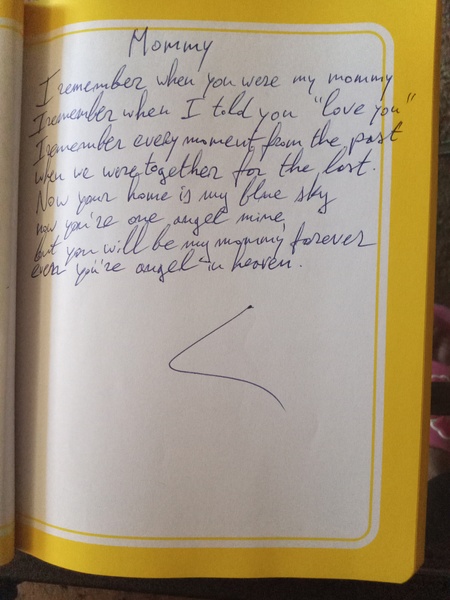 Mommy
I remember when you were my mommy
I remember when I told you "love you"
I remember every moment from the past
when we were together for the last.
Now your home is my blue sky
now you're one angel mine
but you will be my mommy forever
even you're angel in heaven.